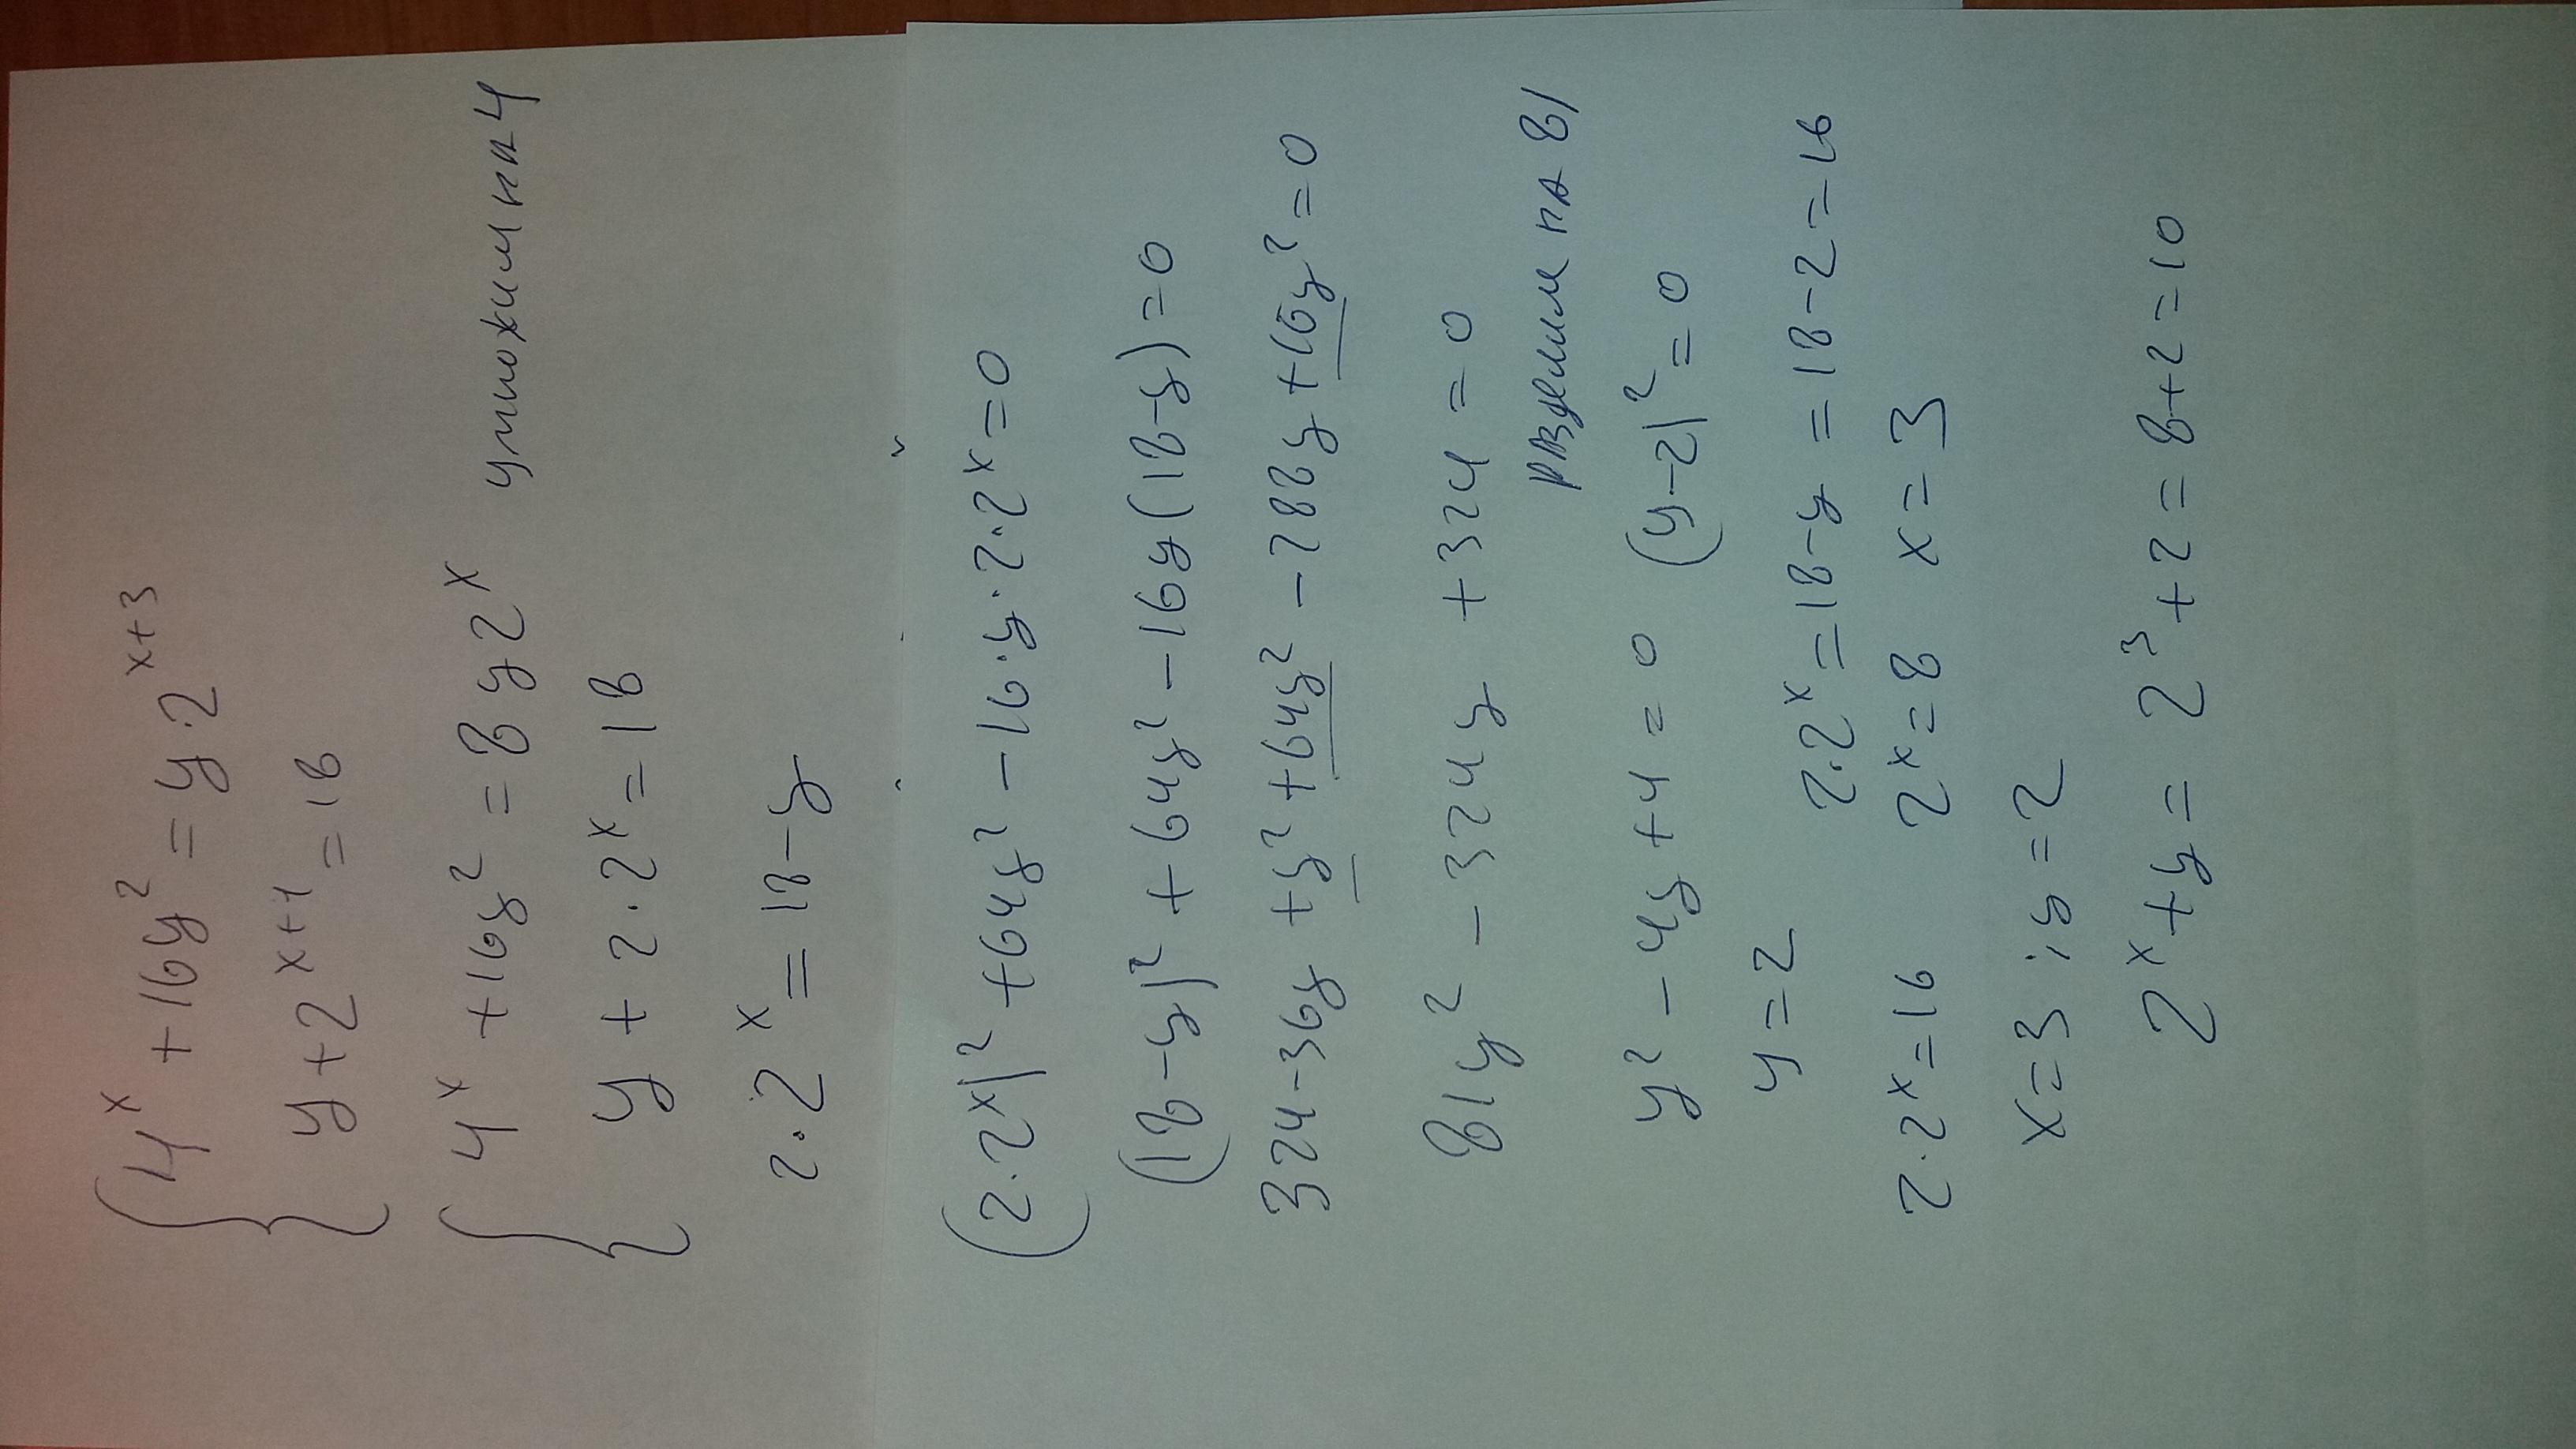 4^x + 16y^2 = y·2^{x+3}
y + 2^{x+1} = 18
4^x + 16y^2 = 8y2^x умножим на 4
y + 2·2^x = 18
2·2^x = 18 - y
(2·2^x)^2 + 64y^2 - 16·y·2·2^x = 0
(18-y)^2 + 64y^2 - 16y(18-y) = 0
324 - 36y + y^2 + 64y^2 - 288y + 16y^2 = 0
81y^2 - 324y + 324 = 0
разделим на 81
y^2 - 4y + 4 = 0 (y-2)^2 = 0
y = 2 2·2^x = 18 - y = 18 - 2 = 16
2·2^x = 16 2^x = 8 x = 3
x = 3 ; y = 2
2^x + y = 2^3 + 2 = 8 + 2 = 10